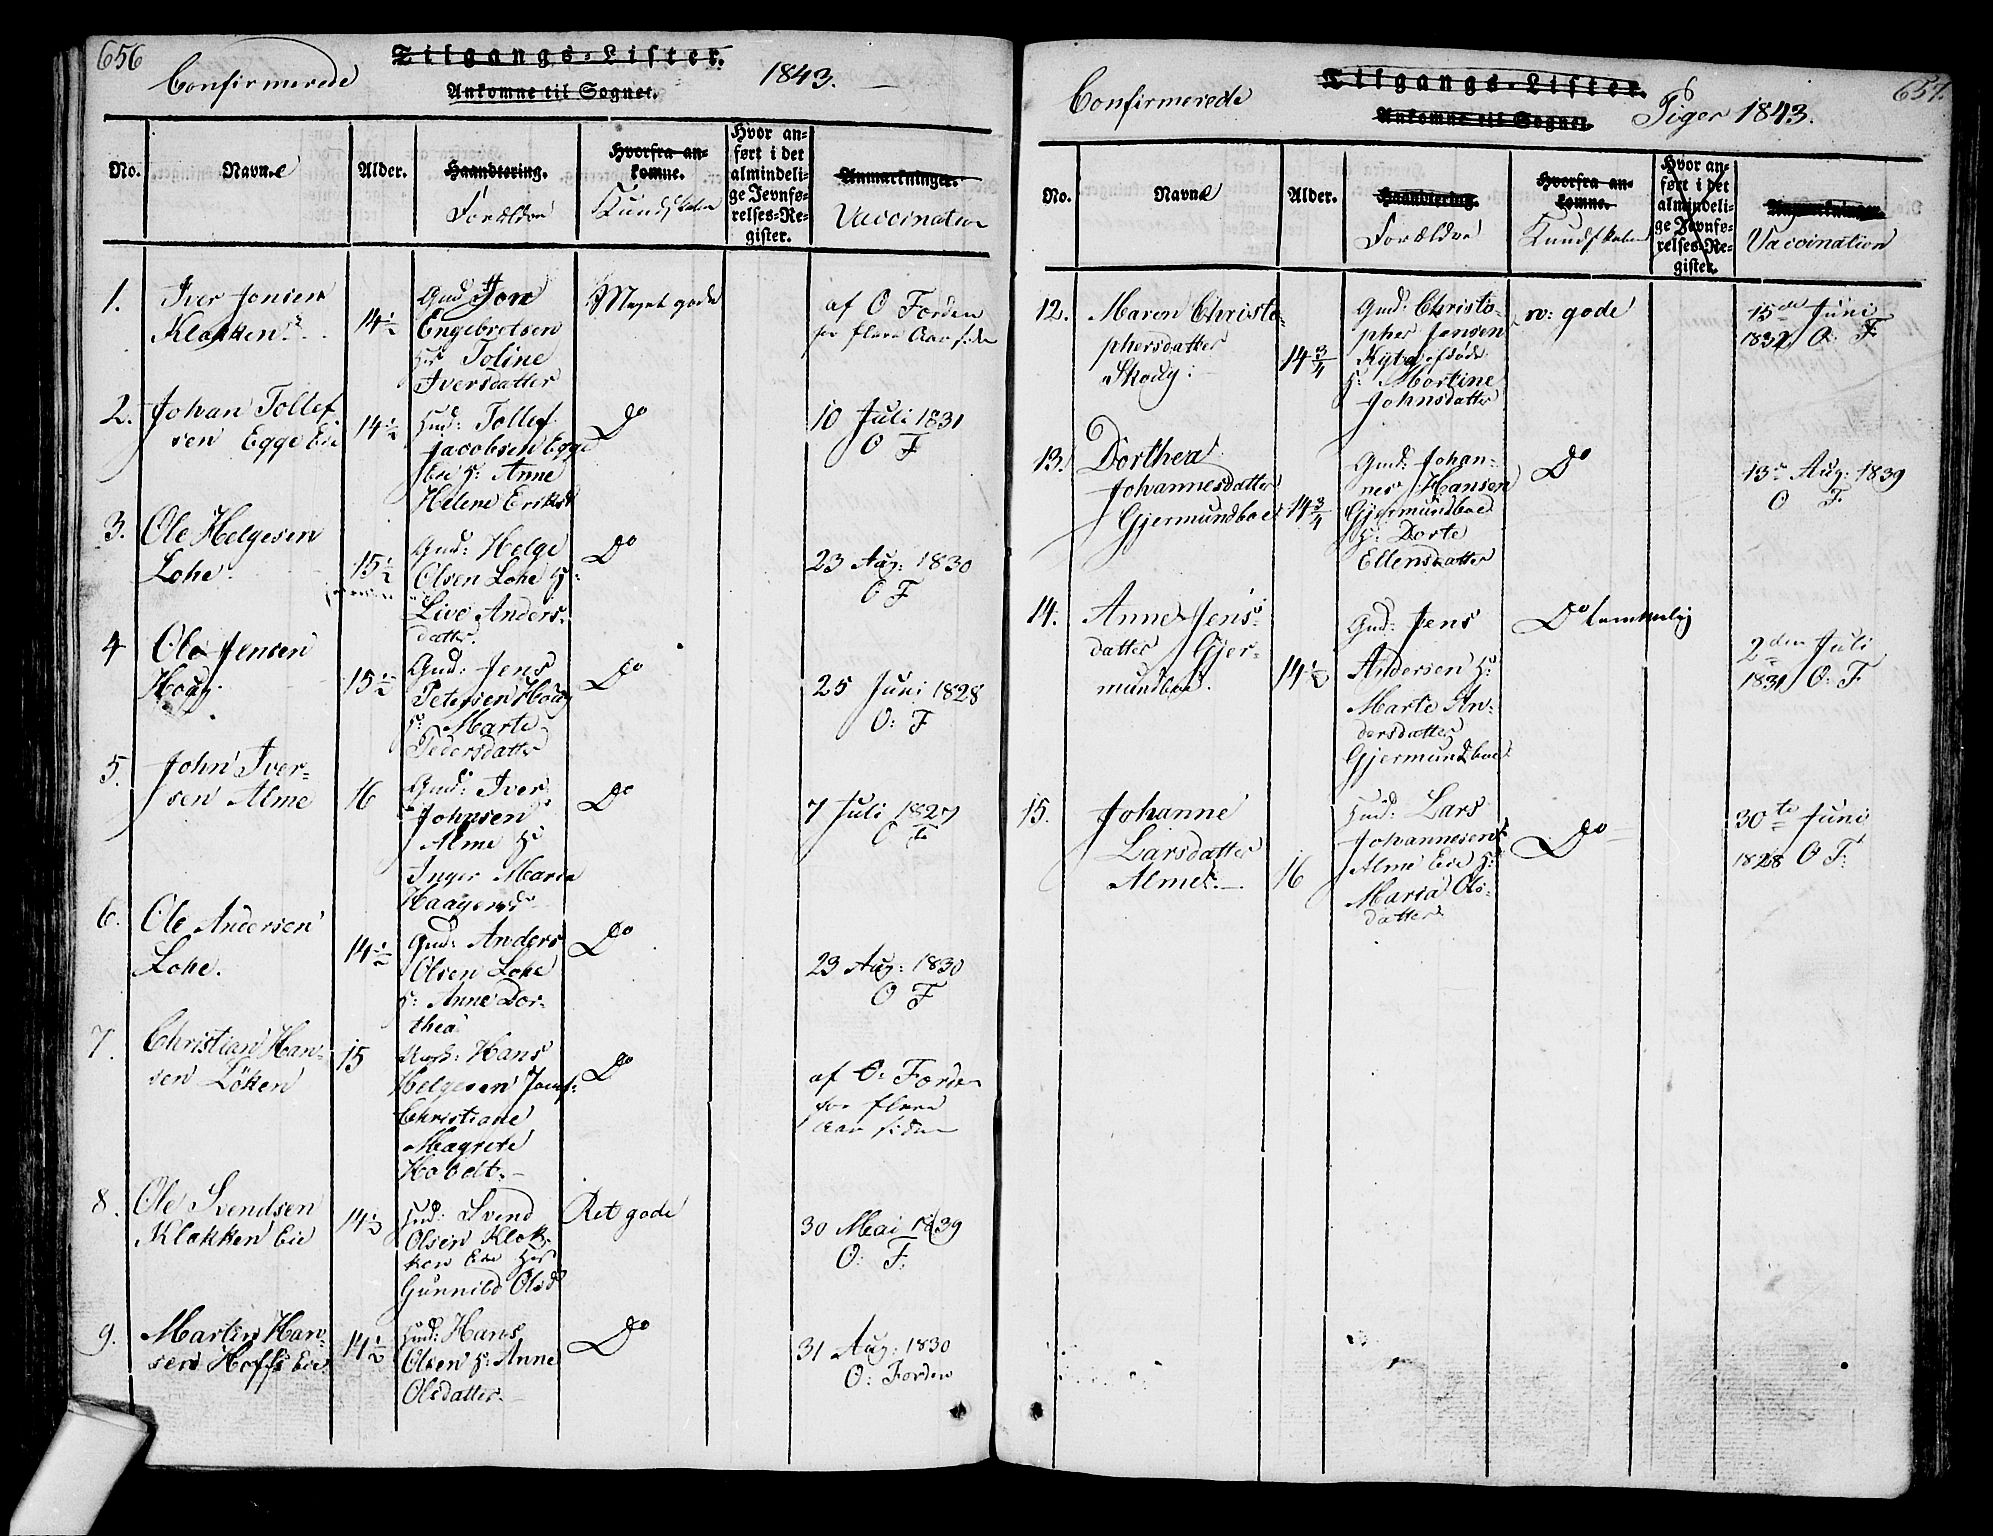 656
Confirmerede
Tilgangs-Lister.
Ankomne til Sognet.
1843.
No.
Navne
Alder.
Haandtering.
Forældre
Hvorfra an-
komne.
Kundskaber
Hvor an-
ført i det
almindeli-
ge Jevnfø-
relses-Re-
gister.
Anmærkninger.
Vaccination
1.
Iver Jonsen
Klækken
14½
Gmd Jon
Engebretsen
Hs Toline
Iversdatter
Meget gode
af O Forden
for flere Aar siden
2.
Johan Tollef
sen Egge Eie
14½
Hmd: Tollef
Jacobsen Egge
Eie H: Anne
Helene Eriksd
Do
10 Juli 1831
O F
3.
Ole Helgesen
Lohe.
15½
Gmd: Helge
Olsen Lohe H:
Live Anders-
datter
Do
23 Aug: 1830
O F
4
Ole Jensen
Houg.
15½
Gmd: Jens
Petersen Houg
H: Marte
Pedersdatter
Do
25 Juni 1828
O: F
5.
John Iver-
sen Alme
16
Gmd: Iver
Johnsen
Alme H:
Inger Maria
Haagensd
Do
7 Juli 1827
O F
6.
Ole Andersen
Lohe.
14½
Gmd: Anders
Olsen Lohe
H: Anne Dor-
thea
Do
23 Aug: 1830
O F
7.
Christian Han-
sen Löken
15
Hans
Helgesen
Christiane
Magrete
Do
af O: Forden
for flere
Aar siden
8.
Ole Svendsen
Klækken Eie
14½
Hmd: Svend
Olsen Klæk-
ken Eie Hs
Gunnild Olsd
Ret gode
30 Mai 1839
O: F.
9.
Martin Han-
sen Hoffs Eie
14½
Hmd: Hans
Olsen H: Anne
Olsdatter
Do
31 Aug: 1830
O: Forden
657.
Confirmerede
Tilgangs-Lister.
Ankomne til Sognet.
Piger 1843.
No.
Navne
Alder.
Haandtering.
Forældre
Hvorfra an-
komne.
Kundskaber
Hvor an-
ført i det
almindeli-
ge Jevnfø-
relses-Re-
gister.
Anmærkninger.
Vaccination
12.
Maren Christo-
phersdatter
Skoug
14¾
Gmd: Christo-
pher Jensen
H: Martine
Johnsdatter
gode
15de Juni
1832 O: F.
13.
Dorthea
Johannesdatter
Gjermundboe
14¾
Gmd: Johan-
nes Hansen
Gjermundboe
H: Dorte
Ellensdatter
Do
13 Aug: 1839
O F.
14.
Anne Jens-
datter Gjer-
mundboe.
14½
Gmd: Jens
Andersen H:
Marte An-
dersdatter
Gjermundboe
Do temmelig
2den Juli
1831 O: F
15.
Johanne
Larsdatter
Alme
16
Hmd: Lars
Johannesen
Alme Eie H:
Maria Ols-
datter
Do
30te Juni
1828 O F: